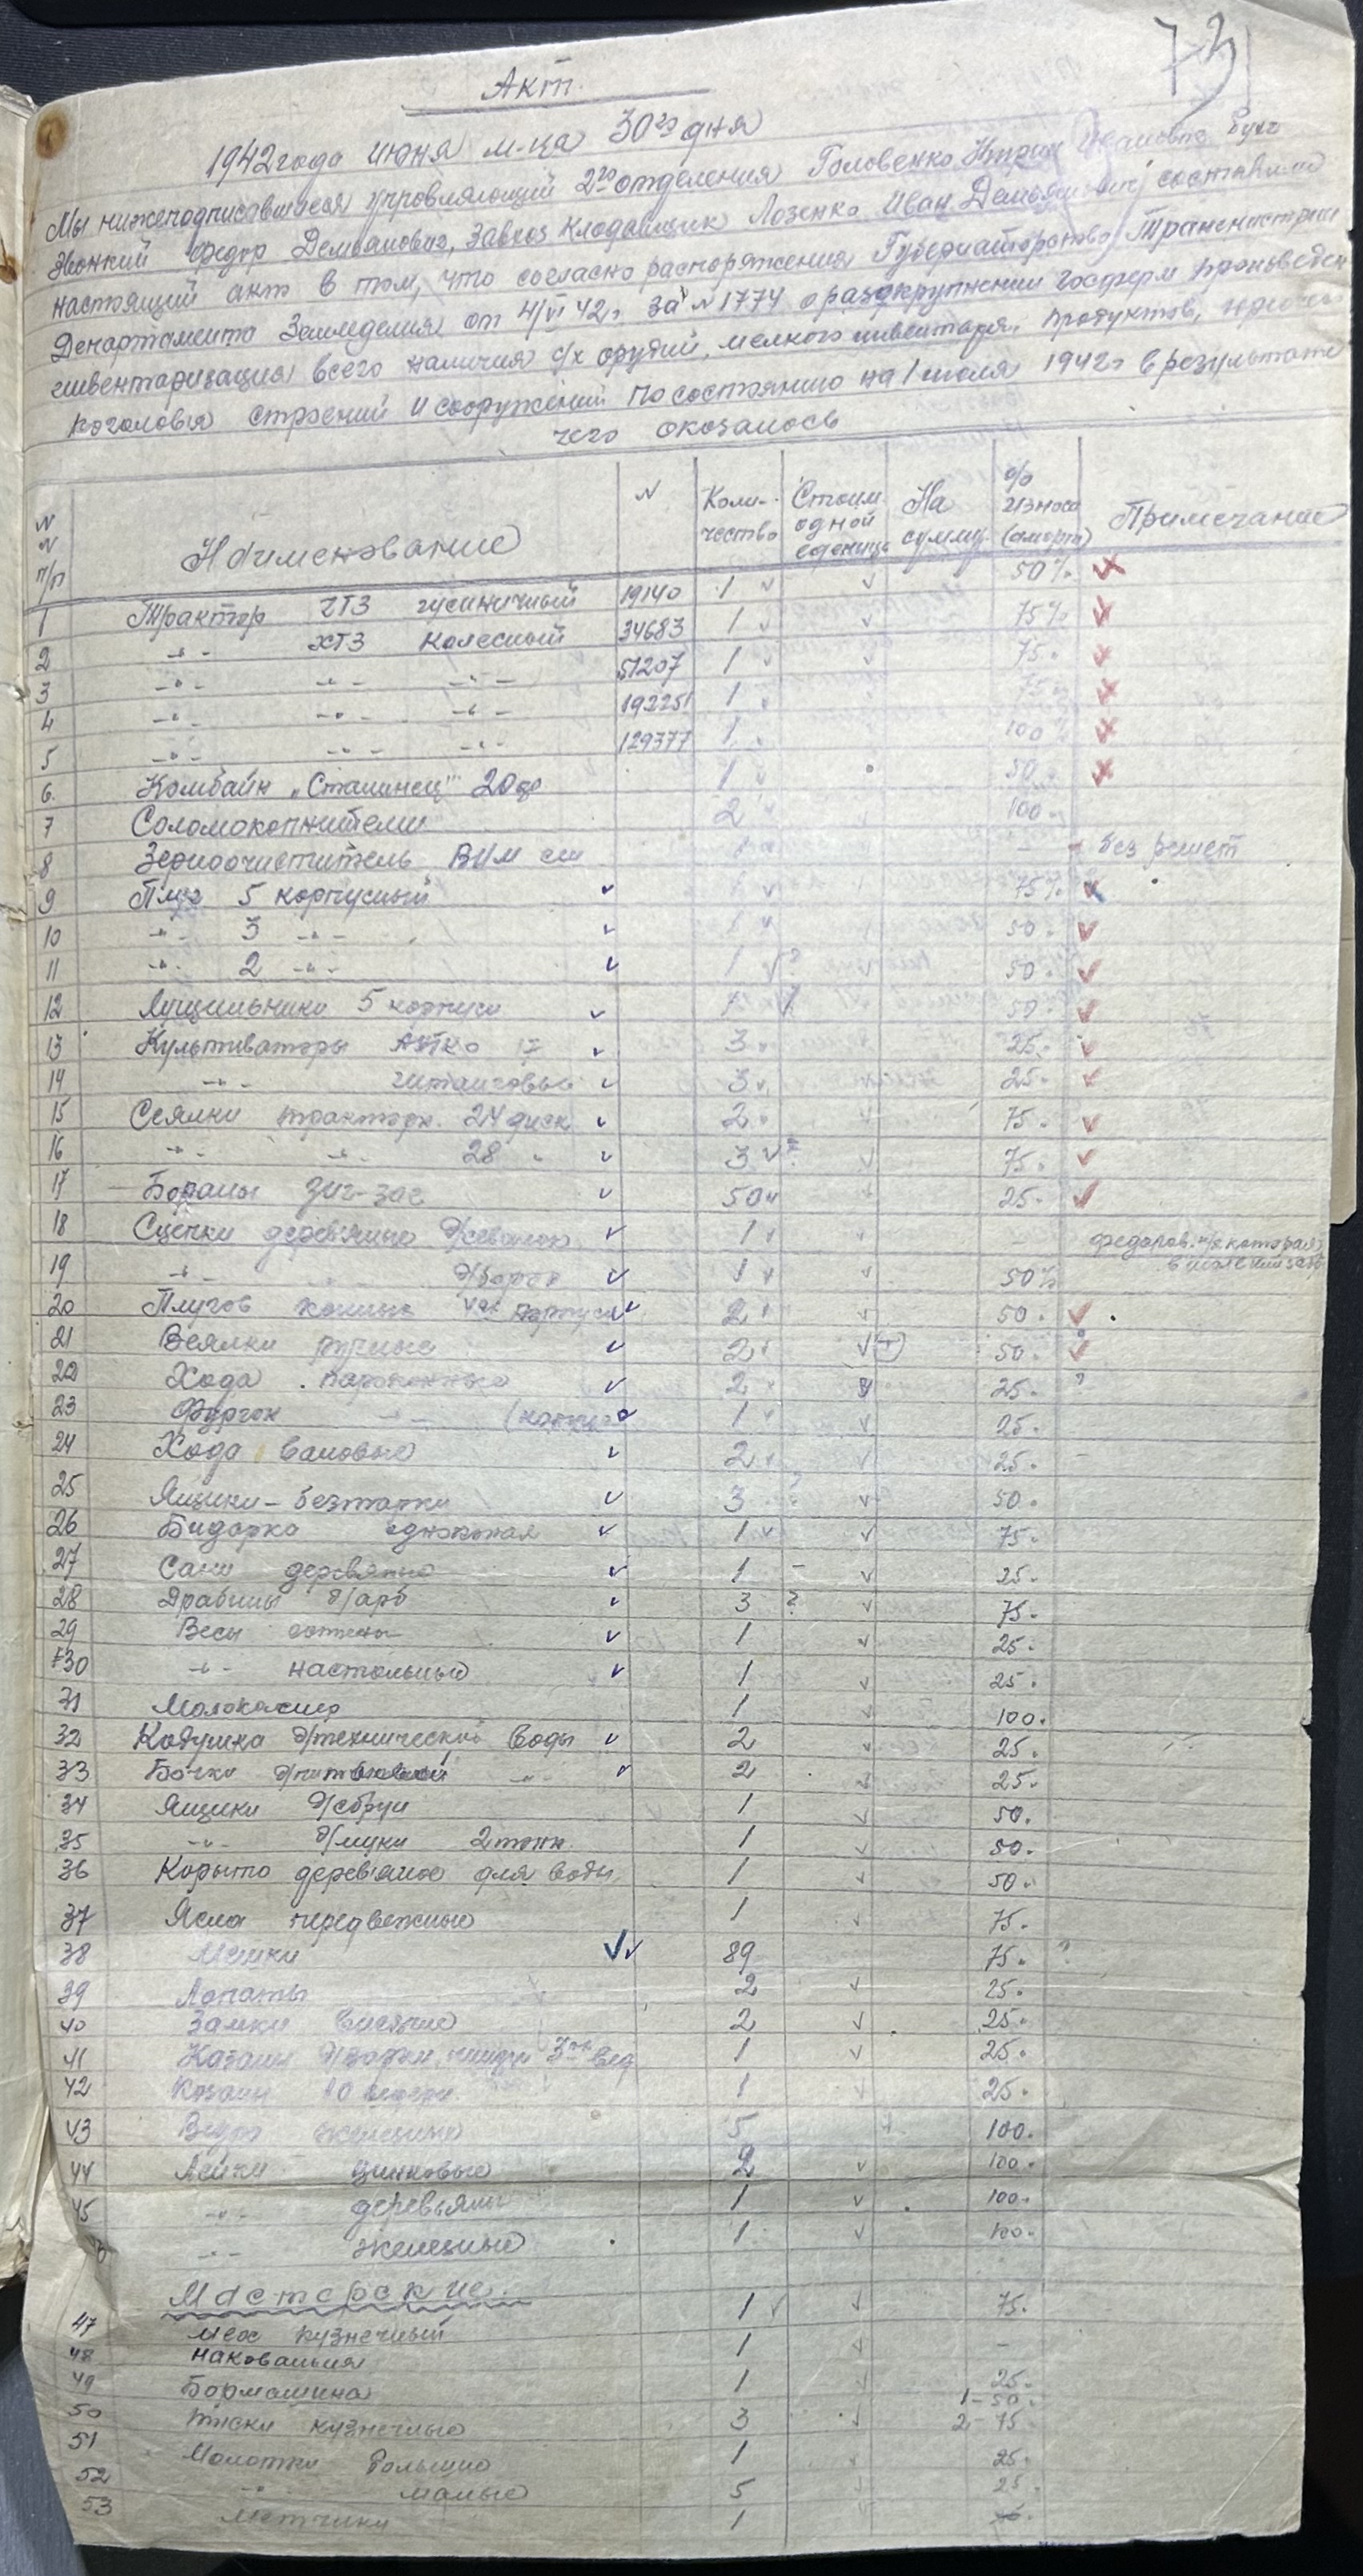 73
Акт.
1942 года июня м-ца 30го дня
Мы нижеподписавшиеся управляющий 2го отделения Головенко Ивановна Бухг
Звонкий Федор Демьянович, Завхоз Кладовщик Лозенко Иван Демьянович составили
настоящий акт в том, что согласно распоряжения Губернаторство Транснистрии
Департамента Земледелия от 4/VI 42г. за N 1774 о разукрупнении госферм произведен
инвентаризация всего наличия с/х орудий, мелкого инвентаря, продуктов,
поголовья строений и сооружений по состоянию на 1 июля 1942г в результате
чего оказалось
N N п/п Наименование N Коли-чество Стоим. одной еденицы На сумму % износа (аморт) Примечание
1 Трактор ЧТЗ гусиничный 19140 1 50%
2 -"- ХТЗ колесный 34683 1 75%
3 -"- -"- -"- 51207 1 75.
4 -"- -"- -"- 192251 1 75
5 -"- -"- -"- 129377 1 100%
6. Комбайн „Сталинец" 20 1 50
7 Соломокопнители 2 100
8 Зерноочиститель ВИМ 1 - без решет
9 Плуг 5 корпусный 1 75%
10 -"- 3 -"- 1 50.
11 -"- 2 -"- 1 ? 50.
12 Лущильники 5 корпусн 1 50.
13 Культиваторы 3 25.
14 -"- штанговые 3 25.
15 Сеялки тракторн. 24 диск 2 75.
16 -"- -"- 28 " 3 75.
17 Бораны зиг-заг 50 25.
18 Сцепки деревяные д/сеялок 1 федоров.
19 -"- д/борон 1 50%
20 Плугов конных корпусн 2 50.
21 Веялки ручные 2 50.
22 Хода пароконные 2 25. ?
23 Фургон -"- 1 25.
24 Хода валовые 2 25. -
25 Ящики-безтарки 3 ? 50.
26 Бидарка одноконая 1 75.
27 Сани деревяные 1 - 25.
28 Драбины д/арб 3 ? 75.
29 Весы сотены 1 25.
30 -"- настольные 1 25.
31 Молокомер 1 100.
32 Кадушка д/технической воды 2 25.
33 Бочки д/питьевой -"- 2 25.
34 Ящики д/сбруи 1 50.
35 -"- д/муки 2 тонн. 1 50.
36 Корыто деревяное для воды 1 50.
37 Ясла передвежные 1 75.
38 Мешки 89 75. ?
39 Лопаты 2 25.
40 Замки висячие 2 25.
41 Казаны 1 25.
42 Казаны 10 ведерн. 1 25.
43 Ведра железные 5 100.
44 Лейки цинковые 2 100.
45 -"- деревяны 1 100.
-"- железные 1 100.
Мастерские.
47 Мех кузнечный 1 75.
48 Наковальня 1 -
49 Бормашина 1 25.
50 Тиски кузнечные 3 1-50. 2-75.
51 Молотки большие 1 25.
52 -"- малые 5 25.
53 Метчики 1